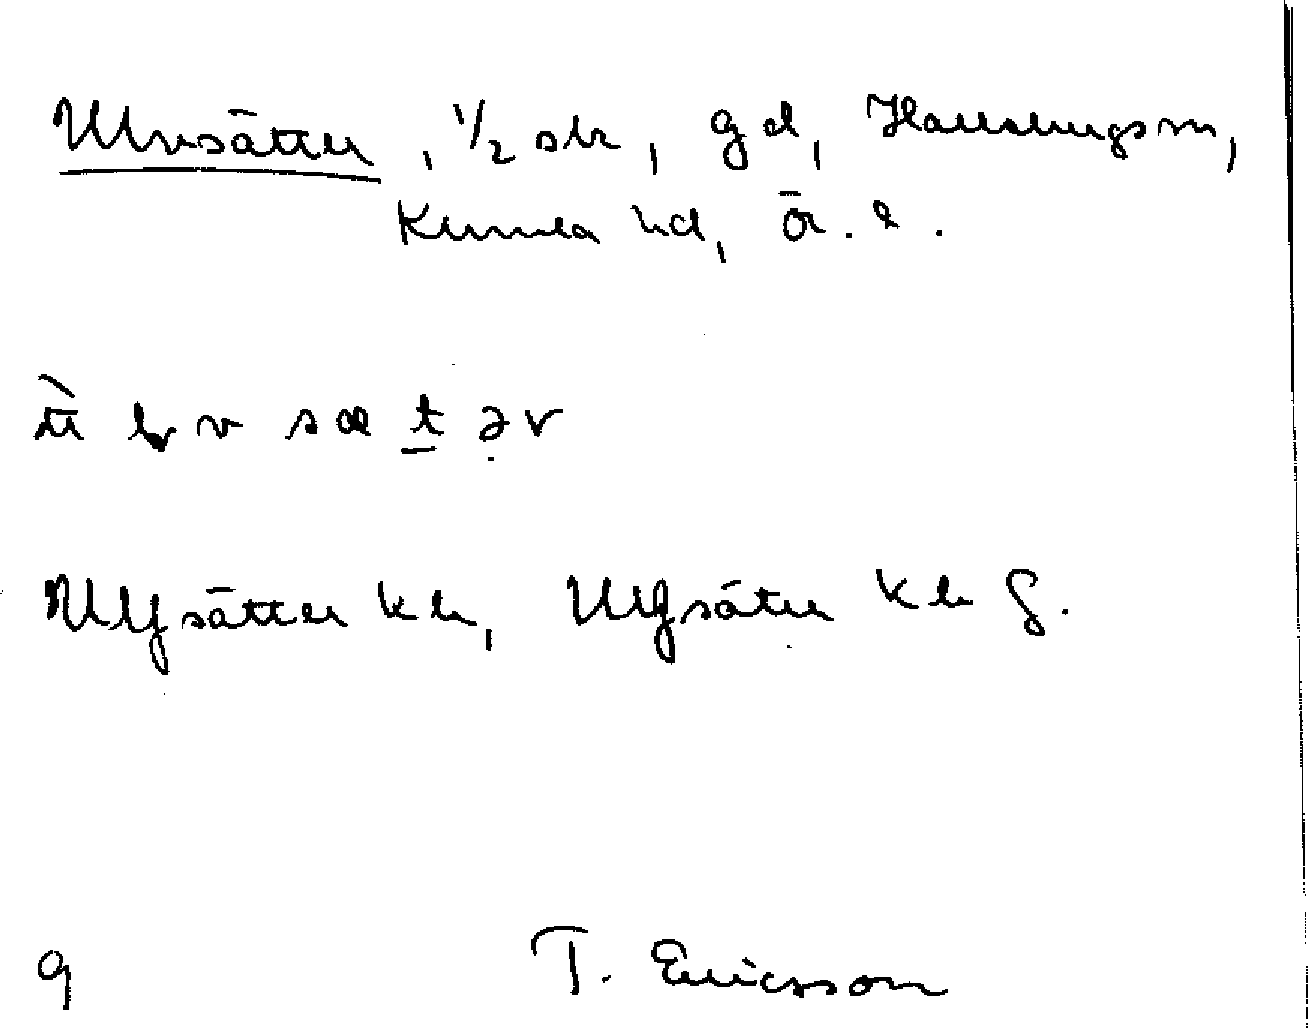 Ulvsätter, 1/2 skr, gd, Hallsbergs sn,
Kumla hd, Ör. l.
Ulfsätter kb, Ulfsäter kb
9 T. Ericsson